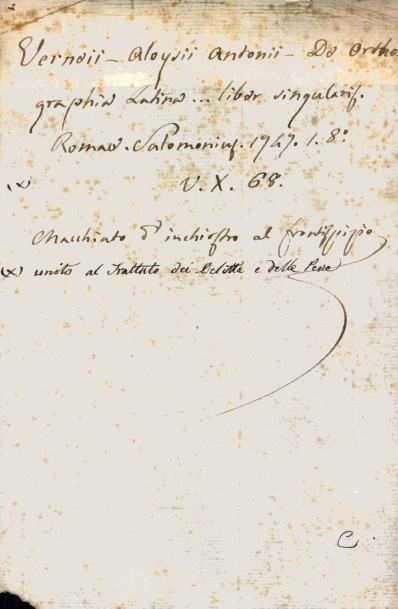 Verneii - Aloysii Antonii - De Ortho
graphia Latina ... liber singularis.
Romae. Salomonius. 1747. 1. 8º
V. X. 68.
(x)
Macchiato d'inchiostro al frontispizio
(x) unito al Trattato dei Delitti e delle Pene
C.